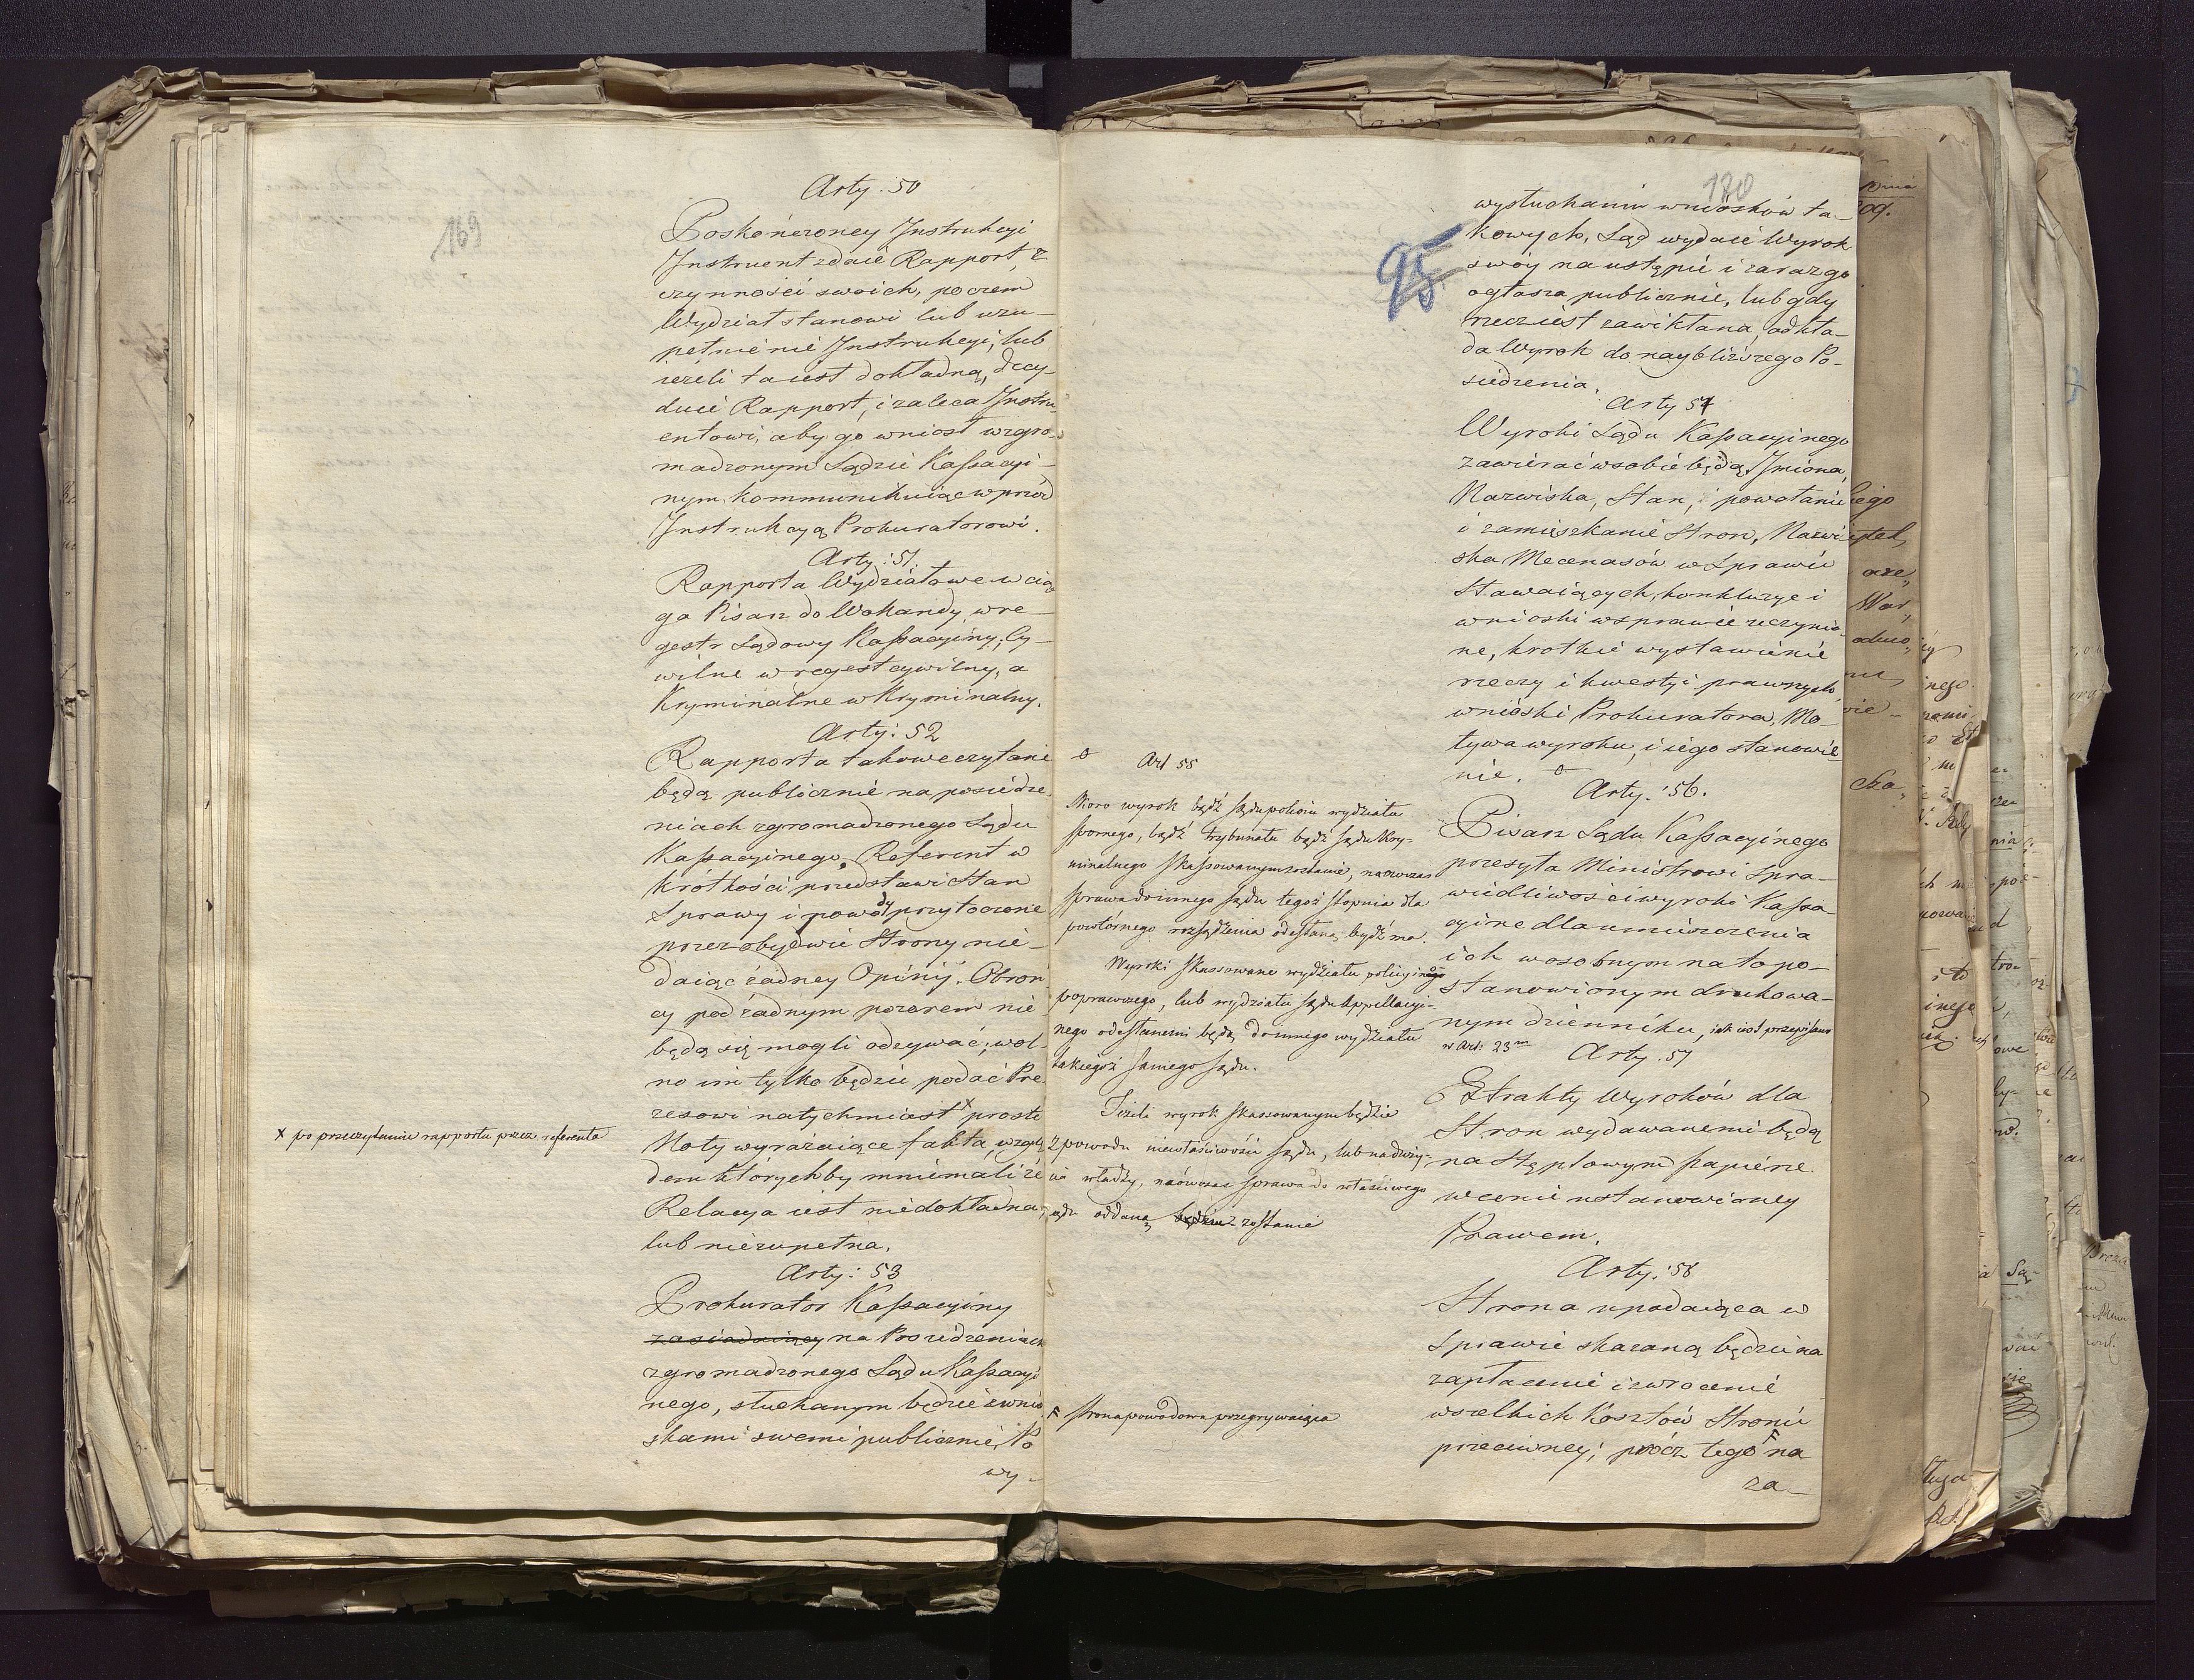 169
Arty. 50
Poskończoney Instrukcyi
Instruent zdaie Rapport z
czynności swoich, poczem
Wydział stanowi lub uzu-
pełnienie Instrukcyi, lub
ieżeli ta iest dokładną, decy-
duie Rapport, i zaleca Instru-
entowi, aby go wniosł wzgro-
madzonym Sądzie Kassacyi-
nym, kommunikuiąc wprzód
Instrukcyą Prokuratorowi.
Arty: 51.
Rapporta Wydziałowe wcią-
ga Pisarz do Wokandy, wre-
gestr Sądowy Kassacyiny; Cy-
wilne w regest cywilny, a
Kryminalne w Kryminalny.
Arty: 52
Rapporta takowe czytane
będą publicznie na posiedze-
niach zgromadzonego Sądu
Kassacyinego. Referent w
krótkości przedstawi Stan
Sprawy i powody przytoczone
przez obydwie Strony nie-
daiąc żadney Opinij. Obroń-
cy pod żadnym pozorem nie-
będą się mogli odzywać; wol-
no im tylko będzie podać Pre-
zesowi natychmiast x proste
x po przeczytaniu rapportu przez referenta
Noty wyrażaiące fakta, wzglę-
dem których by mniemali że
Relacya iest niedokładna,
lub niezupełna.
Arty: 53
Prokurator Kassacyiny
zasiadaiący na Posiedzeniach
zgromadzonego Sądu Kassacyi-
nego, słuchanym będzie z wnio-
skami swemi publicznie, Po
wy-
170
95
wysłuchaniu wniosków ta-
kowych, Sąd wydaie Wyrok
swóy na ustępie i zaraz go
ogłasza publicznie, lub gdy
rzecz iest zawikłana, odkła-
da Wyrok do naybliższego Po-
siedzenia.
Arty 54
Wyroki Sądu Kassacyinego
zawierać w sobie będą, Imiona,
Nazwiska, Stan, powołanie
i zamieszkanie Stron, Nazwi-
ska Mecenasów w Sprawie
Stawaiących, konkluzye i
wnioski w sprawie uczynio-
ne, krótkie wystawienie
rzeczy i kwestyi prawnych,
wnioski Prokuratora, Mo-
tywa wyroku, i iego stanowie-
nie.
Art 55
Skoro wyrok bądź sądu pokoiu wydziału
spornego, bądź trybunału bądź sądu Kry-
minalnego skassowanym zostanie, naówczas
sprawa do innego sądu tegoż stopnia dla
powtórnego rozsądzenia odesłaną bydź ma.
Wyroki skassowane wydziału policyinego
poprawczego, lub wydziału sądu Appellacyi-
nego odesłanemi będą do innego wydziału
takiegoż samego sądu.
Jeżeli wyrok skassowanym będzie
z powodu niewłaściwości sądu, lub naduży-
cia władzy, naówczas sprawa do właściwego
sądu oddaną będzie zostanie
Arty: 56.
Pisarz Sądu Kassacyinego
przesyła Ministrowi Spra-
wiedliwości wyroki Kassa-
cyine dla umieszczenia
ich w osobnym na to po-
stanowionym drukowa-
nym dzienniku, iak iest przepisano
w Art: 23m
Arty. 57
Extrakty Wyroków dla
Stron wydawanemi będą
na Stęplowym papierze
w cenie ustanowioney
Prawem.
Arty: 58
Strona upadaiąca w
Sprawie skazaną będzie na
zapłacenie i zwrócenie
wszelkich Kosztów Stronie
przeciwney; prócz tego na
strona powodowa przegrywaiąca
za-